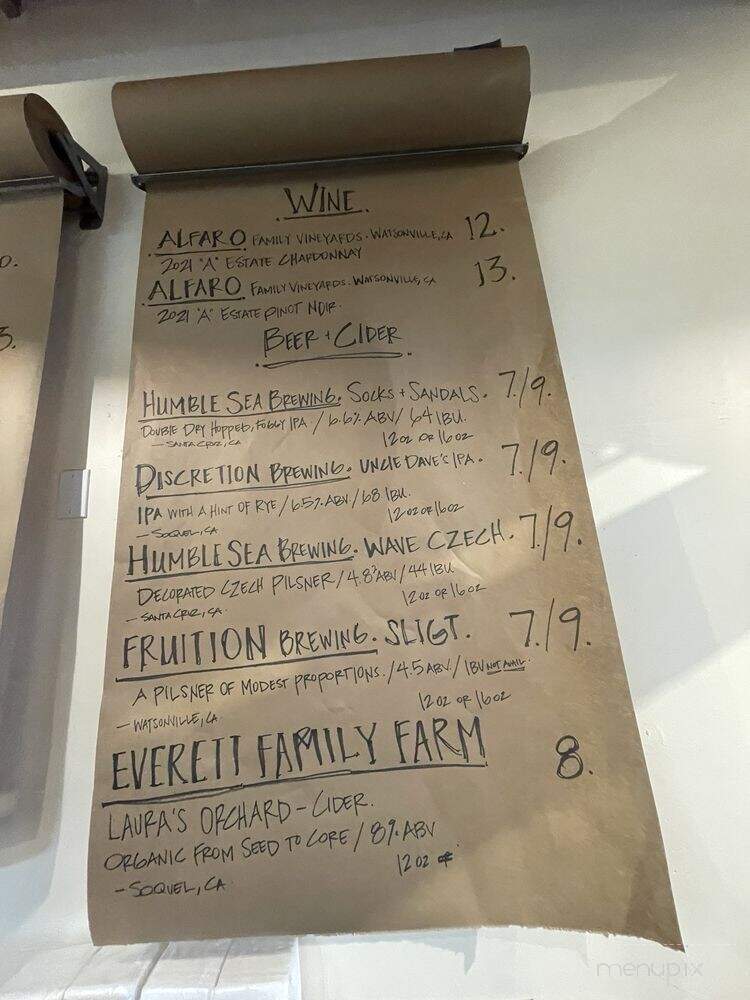 WINE.
ALFARO FAMILY VINEYARDS. WATSONVILLE, CA 12.
2021 "A" ESTATE CHARDONNAY
ALFARO FAMILY VINEYARDS. WATSONVILLE, CA 13.
2021 "A" ESTATE PINOT NOIR.
BEER + CIDER
HUMBLE SEA BREWING. SOCKS + SANDALS. 7./9.
DOUBLE DRY HOPPED, FOGGY IPA / 6.6% ABV / 64 IBU.
- SANTA CRUZ, CA 12 OZ OR 16 OZ
DISCRETION BREWING. UNCLE DAVE'S IPA. 7./9.
IPA WITH A HINT OF RYE / 6.5% ABV. / 68 IBU.
- SOQUEL, CA 12 OZ OR 16 OZ
HUMBLE SEA BREWING. WAVE CZECH. 7./9.
DECORATED CZECH PILSNER / 4.8% ABV / 44 IBU
- SANTA CRUZ, CA. 12 OZ OR 16 OZ
FRUITION BREWING. SLIGT. 7./9.
A PILSNER OF MODEST PROPORTIONS. / 4.5 ABV. / IBU NOT AVAIL.
- WATSONVILLE, CA 12 OZ OR 16 OZ
EVERETT FAMILY FARM 8.
LAURA'S ORCHARD - CIDER.
ORGANIC FROM SEED TO CORE / 8% ABV
12 OZ
- SOQUEL, CA
0.
3.
menupix